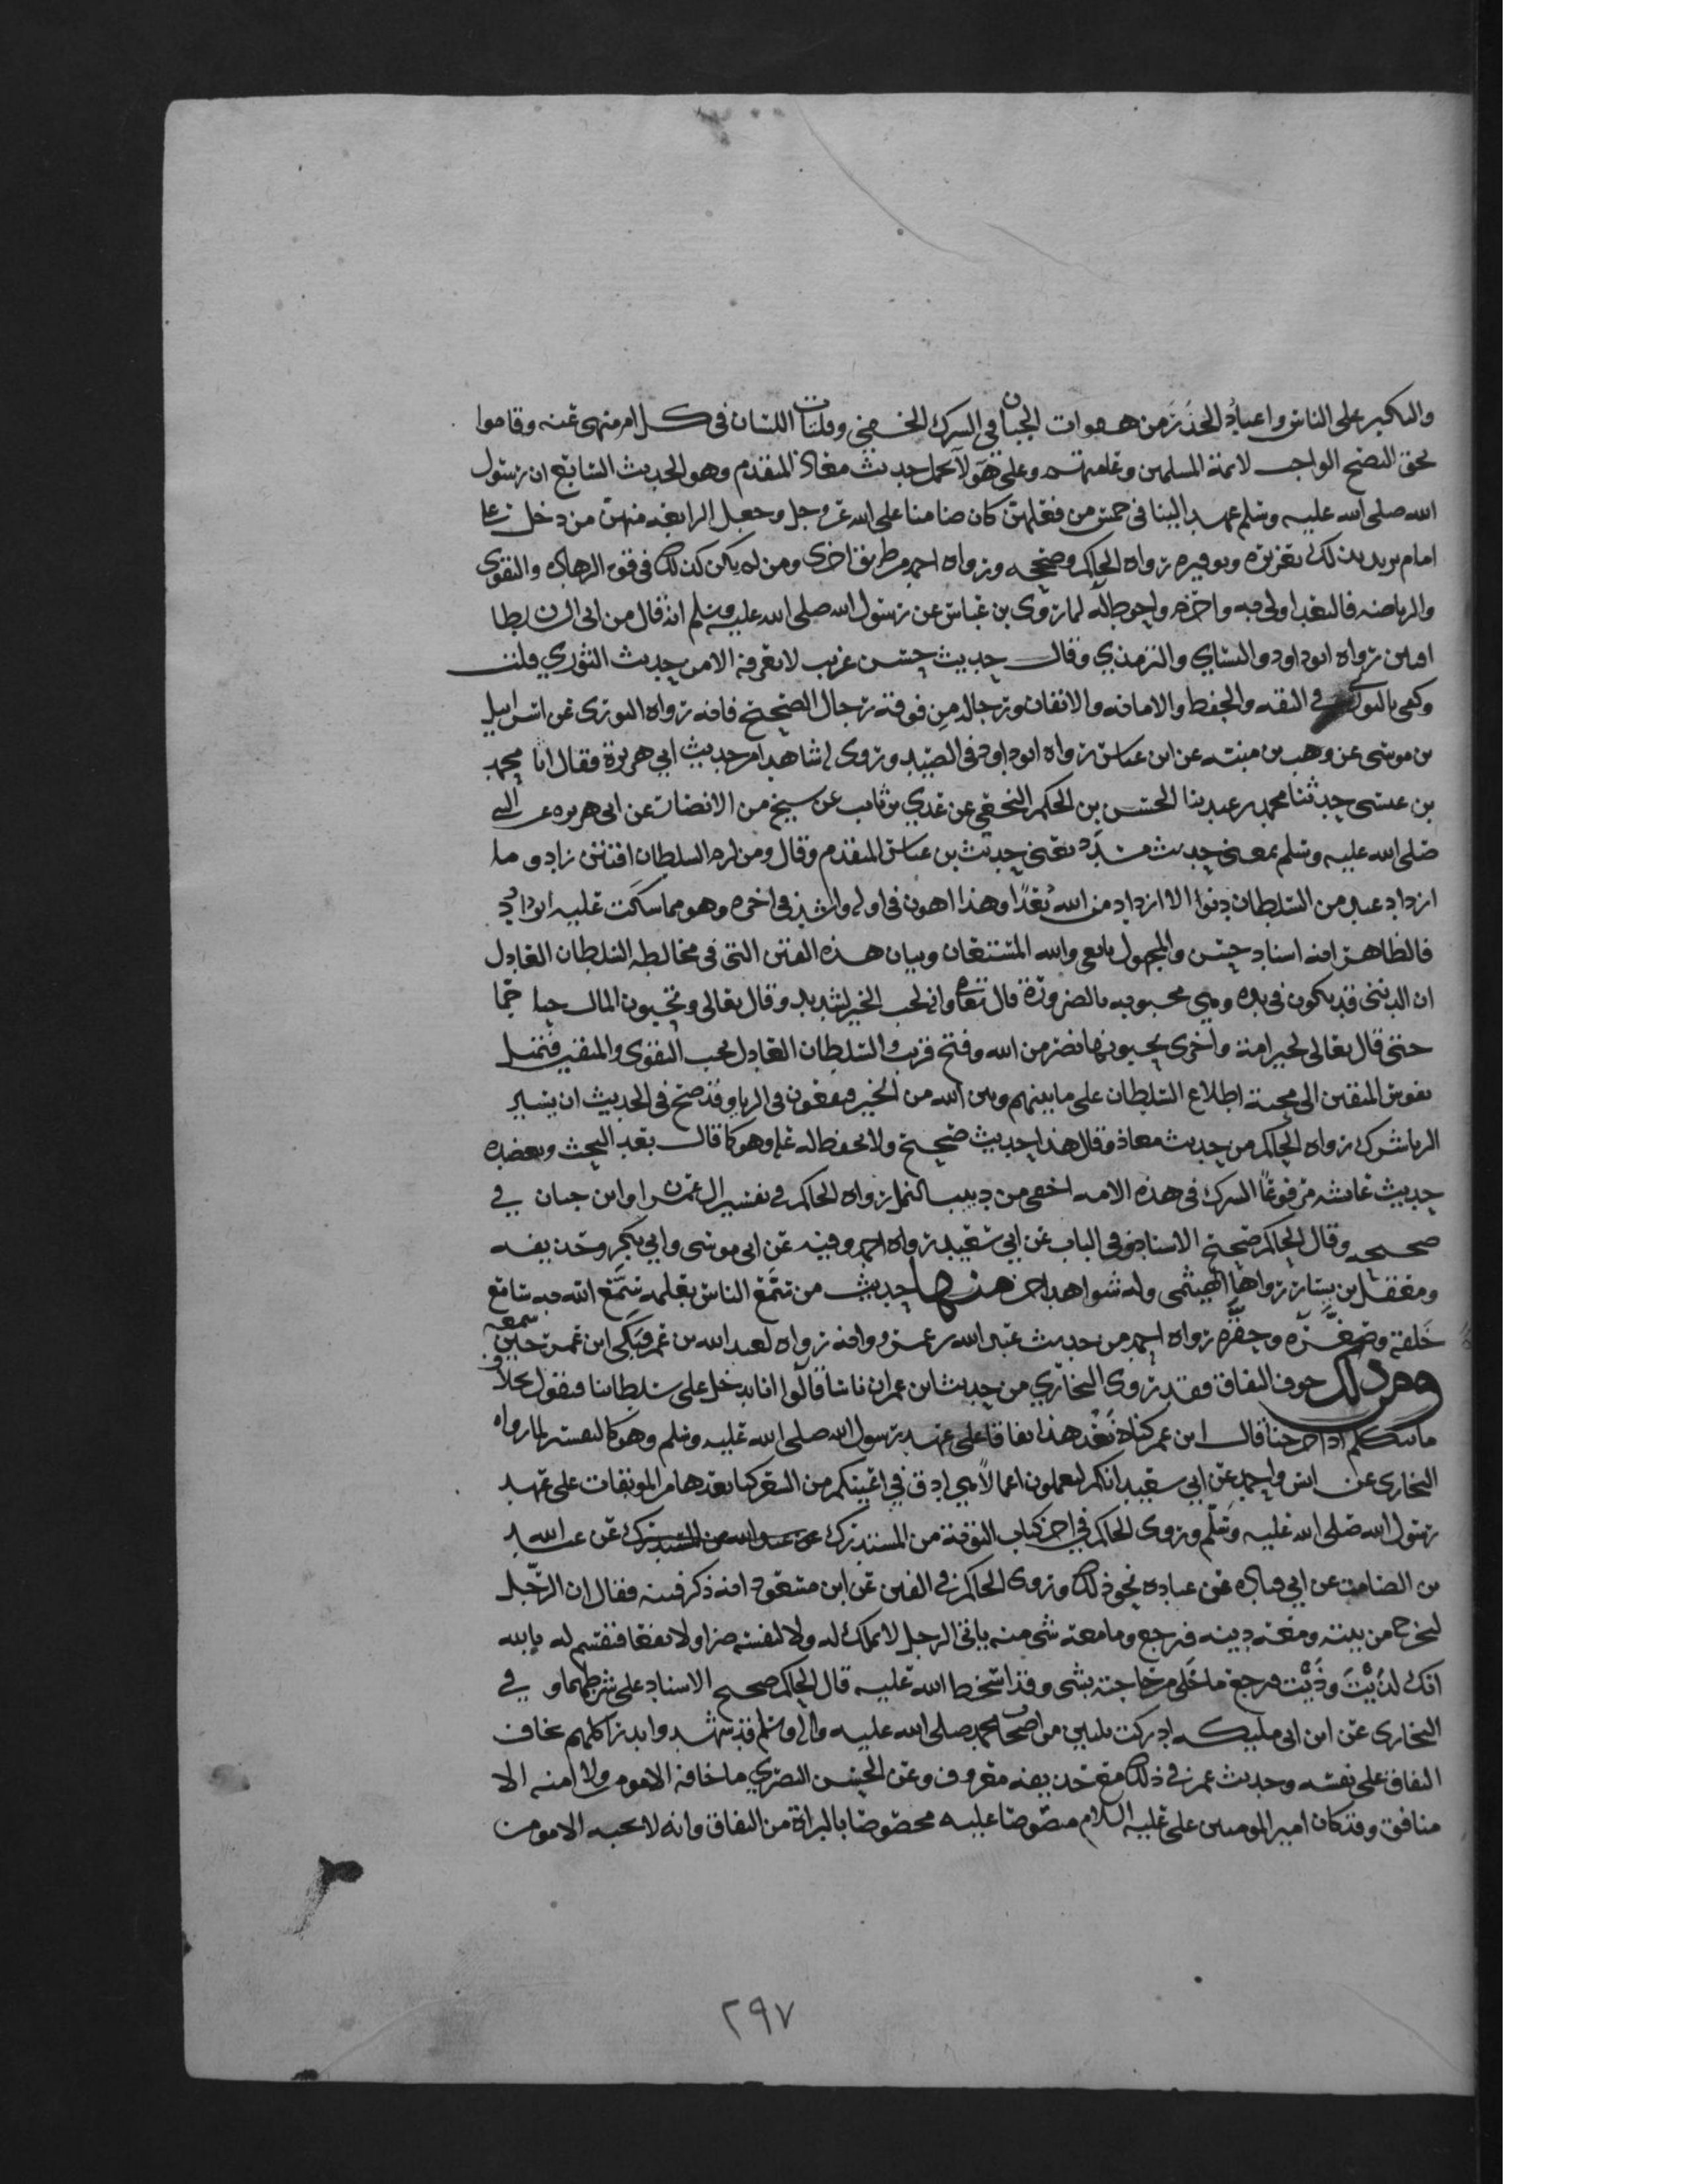 والتكبر على الناس واعتياد الحذر من هفوات الجنان في الشرك الخفي وفلتات اللسان في كل امر منهى عنه وقاموا
بحق النصح الواجب لائمة المسلمين وعامتهم وعلى هولا يحمل حديث معاذ المتقدم وهو الحديث السابع ان رسول
الله صلى الله عليه وسلم عهد الينا في خمس من فعلهن كان ضامنا على الله عز وجل وجعل الرابعه منهن من دخل على
امام يريد بذلك تعزيره وتوقيره رواه الحاكم وصححه ورواه احمد من طريق اخرى ومن لم يكن كذلك في قوة الزهاده والتقوى
والرياضه فالبعد اولى به واحزم واحوط له لما روى بن عباس عن رسول الله صلى الله عليه وسلم انه قال من اتى السلطان
افتتن رواه ابو داود والنساي والترمذي وقال حديث حسن غريب لا نعرفه الا من حديث الثوري قلت
وكفى بالثوري في الثقه والحفظ والامانه والاتقان ورجاله من فوقه رجال الصحيح فانه رواه الثوري عن اسرائيل
بن موسى عن وهب بن منبه عن ابن عباس رواه ابو داود في الصيد وروى له شاهدا من حديث ابي هريرة فقال انا محمد
بن عيسى حدثنا محمد بن عبيد ثنا الحسن بن الحكم النخعي عن عدي بن ثابت عن شيخ من الانصار عن ابي هريره عن النبي
صلى الله عليه وسلم بمعنى حديث مسدد يعني حديث بن عباس المتقدم وقال ومن لزم السلطان افتتن زاد وما
ازداد عبد من السلطان دنوا الا ازداد من الله بعدا وهذا اهون في اوله واشد في اخره وهو مما سكت عليه ابو داود
فالظاهر انه اسناد حسن والمجهول تابعي والله المستعان وبيان هذه الفتن التي في مخالطه السلطان العادل
ان الدنيى قد يكون في يده وهي محبوبه بالضرورة قال تعالى وانه لحب الخير لشديد وقال تعالى وتحبون المال حبا جما
حتى قال تعالى لخير امة واخرى تحبونها نصر من الله وفتح قريب والسلطان العادل يحب التقوى والمتقين فتميل
نفوس المتقين الى محبة اطلاع السلطان على ما بينهم وبين الله من الخير فيقعون في الريا وقد صح في الحديث ان يسير
الريا شرك رواه الحاكم من حديث معاذ وقال هذا حديث صحيح ولا يحفظ له علة وهو كما قال بعد البحث ويعضده
حديث عائشه مرفوعا الشرك في هذه الامه اخفى من دبيب النمل رواه الحاكم في تفسير ال عمران وابن حبان في
صحيحه وقال الحاكم صحيح الاسناد وفي الباب عن ابي سعيد رواه احمد وفيه عن ابي موسى وابي بكر وحذيفه
ومعقل بن يسار رواها الهيثمي وله شواهد اخر منها حديث من سمع الناس بعلمه سمع الله به سامع
خلقه وصغره وحقره رواه احمد من حديث عبد الله بن عمرو وانه رواه لعبد الله بن عمر فبكى ابن عمر حين سمعه
ومن ذلك خوف النفاق فقد روى البخاري من حديث ابن عمر ان ناسا قالوا انا ندخل على سلطاننا فنقول بخلاف
ما نتكلم اذا خرجنا قال ابن عمر كنا نعد هذا نفاقا على عهد رسول الله صلى الله عليه وسلم وهو كالتفسير لما رواه
البخاري عن انس واحمد عن ابي سعيد انكم لتعملون اعمالا هي ادق في اعينكم من الشعر كنا نعدها من الموبقات على عهد
رسول الله صلى الله عليه وسلم وروى الحاكم في اخر كتاب التوبة من المستدرك عن عبد الله من المستدرك عن عبد الله
بن الصامت عن ابي قتاده عن عباده نحو ذلك وروى الحاكم في الفتن عن ابن مسعود انه ذكر فتنه فقال ان الرجل
ليخرج من بيته ومعه دينه فيرجع وما معه شي منه ياتي الرجل لا يملك له ولا لنفسه ضرا ولا نفعا فيقسم له بالله
انك لذيت وذيت فيرجع ما خلي من حاجته بشي وقد اسخط الله عليه قال الحاكم صحيح الاسناد على شرطهما وفي
البخاري عن ابن ابي مليكه ادركت ثلثين من اصحاب محمد صلى الله عليه واله وسلم قد شهدوا بدرا كلهم يخاف
النفاق على نفسه وحديث عمر في ذلك مع حذيفه معروف وعن الحسن البصري ما خافه الا مومن ولا امنه الا
منافق وقد كان امير المومنين علي عليه السلام منصوصا عليه مخصوصا بالبراة من النفاق وانه لا يحبه الا مومن
٢٩٧